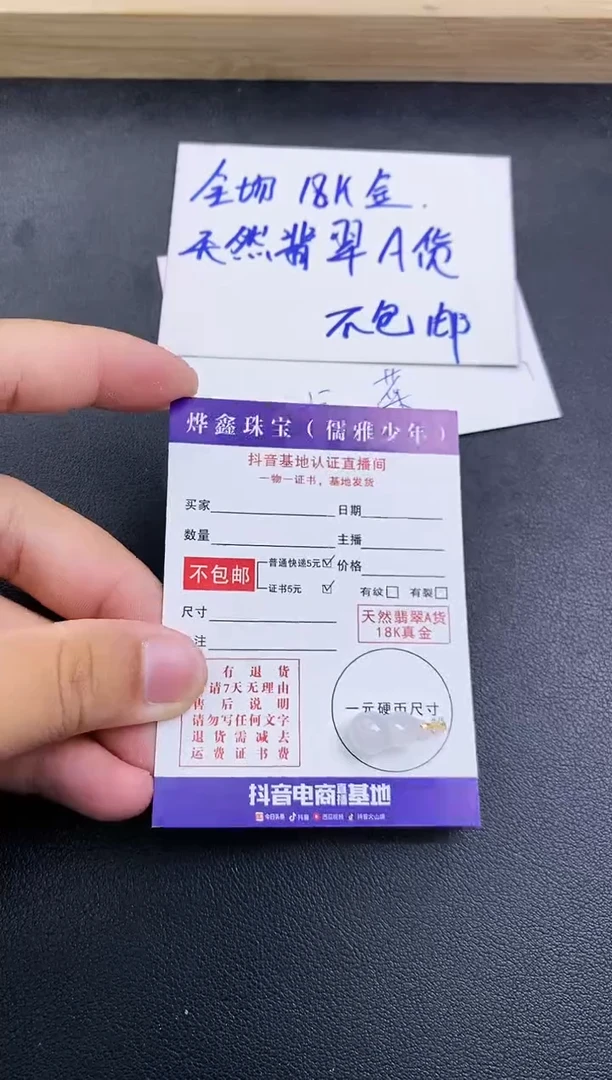 全场 18K金.
天然翡翠A货
不包邮
烨鑫珠宝（儒雅少年）
抖音基地认证直播间
一物一证书，基地发货
买家 日期
数量 主播
不包邮 普通快递5元 价格
证书5元 有纹 有裂
尺寸 天然翡翠A货
18K真金
注
有退货
请7天无理由
售后说明
请勿写任何文字
退货需减去
运费证书费
一元硬币尺寸
抖音电商直播基地
今日头条 抖音 西瓜视频 抖音火山版